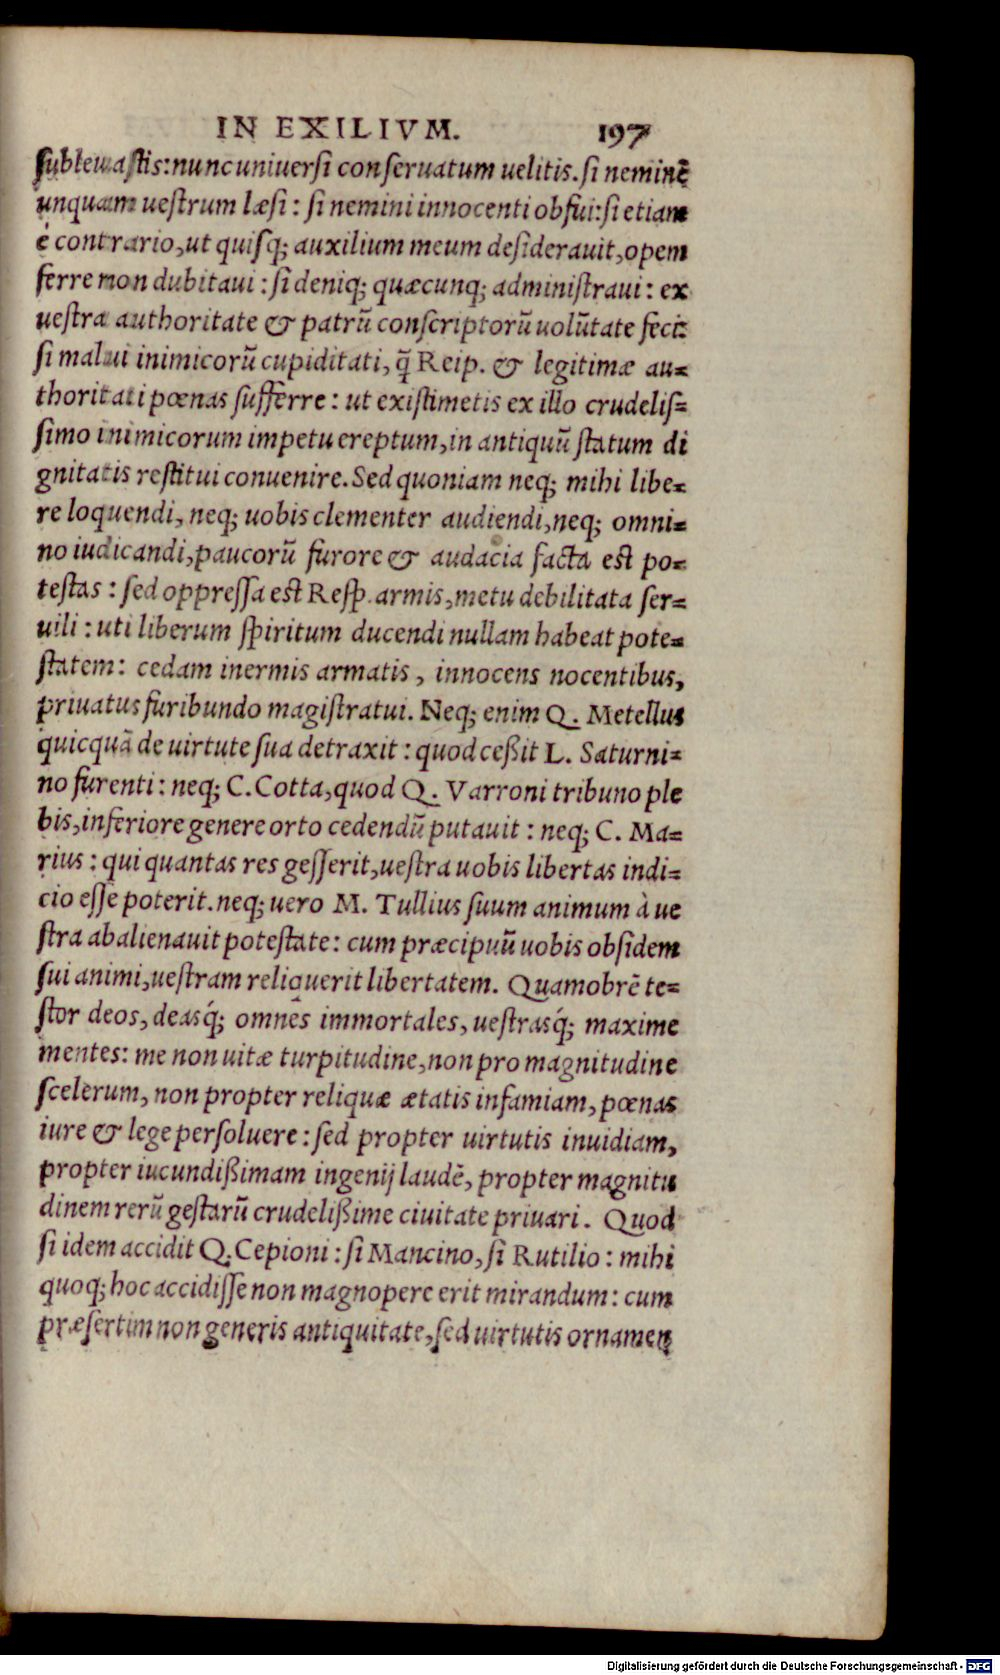 IN EXILIVM. 197
ſubleuaſtis: nunc uniuerſi conſeruatum uelitis. ſi neminē
unquam ueſtrum læſi: ſi nemini innocenti obfui: ſi etiam
è contrario, ut quiſq; auxilium meum deſiderauit, opem
ferre non dubitaui: ſi deniq; quæcunq; adminiſtraui: ex
ueſtra authoritate & patrū conſcriptorū uolūtate feci:
ſi malui inimicorū cupiditati, q̄ Reip. & legitimæ au=
thoritati pœnas ſufferre: ut exiſtimetis ex illo crudeliſ=
ſimo inimicorum impetu ereptum, in antiquū ſtatum di
gnitatis reſtitui conuenire. Sed quoniam neq; mihi libe=
re loquendi, neq; uobis clementer audiendi, neq; omni=
no iudicandi, paucorū furore & audacia facta est po=
teſtas: ſed oppreſſa est Reſp. armis, metu debilitata ſer=
uili: uti liberum ſpiritum ducendi nullam habeat pote=
ſtatem: cedam inermis armatis, innocens nocentibus,
priuatus furibundo magiſtratui. Neq; enim Q. Metellus
quicquā de uirtute ſua detraxit: quod ceßit L. Saturni=
no furenti: neq; C. Cotta, quod Q. Varroni tribuno ple
bis, inferiore genere orto cedendū putauit: neq; C. Ma=
rius: qui quantas res geſſerit, ueſtra uobis libertas indi=
cio eſſe poterit. neq; uero M. Tullius ſuum animum à ue
ſtra abalienauit poteſtate: cum præcipuū uobis obſidem
ſui animi, ueſtram reliquerit libertatem. Quamobrē te=
ſtor deos, deasq́; omnes immortales, ueſtrasq́; maxime
mentes: me non uitæ turpitudine, non pro magnitudine
ſcelerum, non propter reliquæ ætatis infamiam, pœnas
iure & lege perſoluere: ſed propter uirtutis inuidiam,
propter iucundißimam ingenij laudē, propter magnitu
dinem rerū geſtarū crudelißime ciuitate priuari. Quod
ſi idem accidit Q. Cepioni: ſi Mancino, ſi Rutilio: mihi
quoq; hoc accidiſſe non magnopere erit mirandum: cum
præſertim non generis antiquitate, ſed uirtutis ornamen
Digitalisierung gefördert durch die Deutsche Forschungsgemeinschaft - DFG